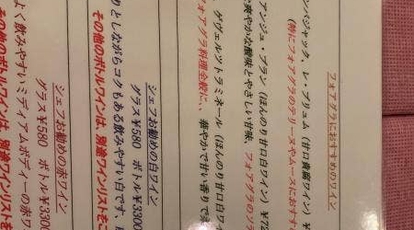 フォアグラにおすすめのワイン
ンバジャック、レ・プリュム（甘口貴腐ワイン）￥
（特にフォアグラのテリーヌやムースにおすす
アンジュ・ブラン（ほんのり甘口白ワイン）￥7
爽やかな酸味とやさしい甘味。フォアグラのソ
ゲヴェルツトラミネール（ほんのり甘口白ワ
ォアグラ料理全般に。華やかで甘い香りで
シェフお勧めの白ワイン
グラス￥580 ボトル￥3300
りとしながらコクもある飲みやすい白です。
その他のボトルワインは、別途ワインリストをご
シェフお勧めの赤ワイン
グラス￥580 ボトル￥3300
よく飲みやすいミディアムボディーの赤ワ
その他のボトルワインは、別途ワインリストを